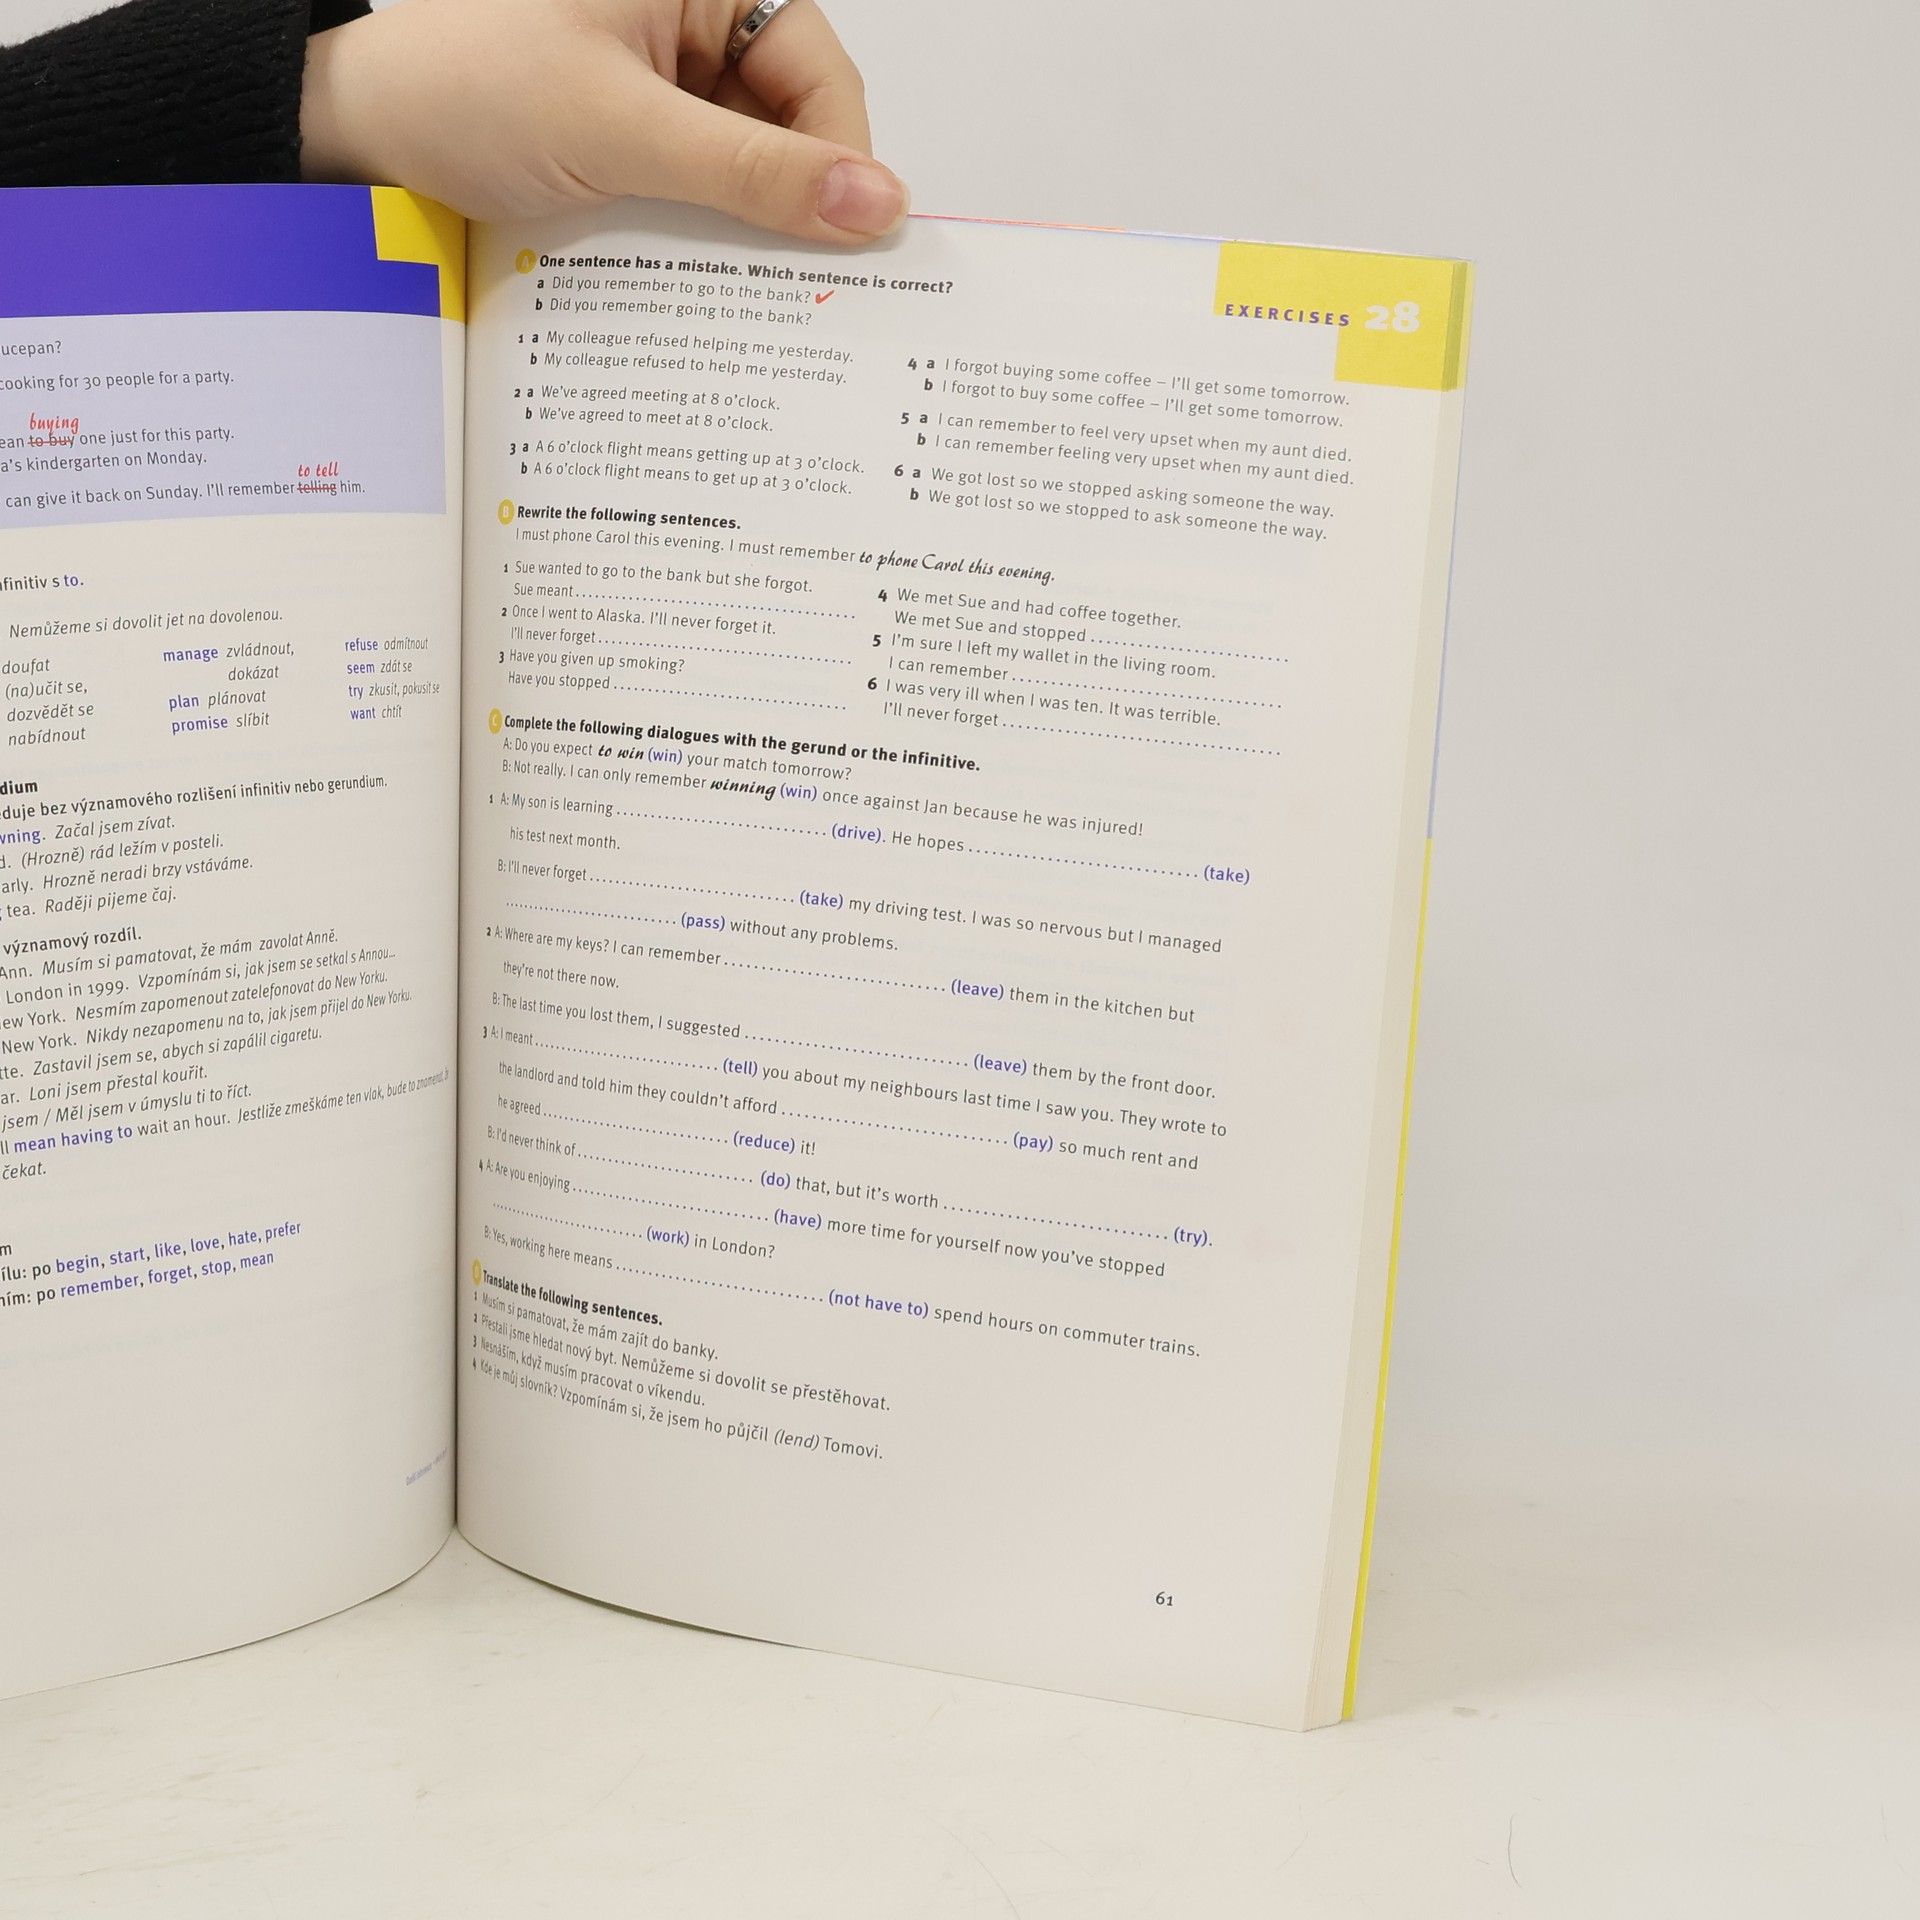 ucepan?
cooking for 30 people for a party.
buying
ean to buy one just for this party.
a's kindergarten on Monday.
to tell
can give it back on Sunday. I'll remember telling him.
nfinitiv s to.
Nemůžeme si dovolit jet na dovolenou.
doufat manage zvládnout, refuse odmítnout
(na)učit se, dokázat seem zdát se
dozvědět se plan plánovat try zkusit, pokusit se
nabídnout promise slíbit want chtít
dium
duje bez významového rozlišení infinitiv nebo gerundium.
wning. Začal jsem zívat.
d. (Hrozně) rád ležím v posteli.
arly. Hrozně neradi brzy vstáváme.
tea. Raději pijeme čaj.
významový rozdíl.
Ann. Musím si pamatovat, že mám zavolat Anně.
London in 1999. Vzpomínám si, jak jsem se setkal s Annou...
ew York. Nesmím zapomenout zatelefonovat do New Yorku.
New York. Nikdy nezapomenu na to, jak jsem přijel do New Yorku.
tte. Zastavil jsem se, abych si zapálil cigaretu.
ar. Loni jsem přestal kouřit.
jsem / Měl jsem v úmyslu ti to říct.
ll mean having to wait an hour. Jestliže zmeškáme ten vlak, bude to znamenat, že
čekat.
m
ílu: po begin, start, like, love, hate, prefer
ním: po remember, forget, stop, mean
EXERCISES 28
A One sentence has a mistake. Which sentence is correct?
a Did you remember to go to the bank? ✓
b Did you remember going to the bank?
1 a My colleague refused helping me yesterday.
b My colleague refused to help me yesterday.
2 a We've agreed meeting at 8 o'clock.
b We've agreed to meet at 8 o'clock.
3 a A 6 o'clock flight means getting up at 3 o'clock.
b A 6 o'clock flight means to get up at 3 o'clock.
4 a I forgot buying some coffee – I'll get some tomorrow.
b I forgot to buy some coffee – I'll get some tomorrow.
5 a I can remember to feel very upset when my aunt died.
b I can remember feeling very upset when my aunt died.
6 a We got lost so we stopped asking someone the way.
b We got lost so we stopped to ask someone the way.
B Rewrite the following sentences.
I must phone Carol this evening. I must remember to phone Carol this evening.
1 Sue wanted to go to the bank but she forgot.
Sue meant ........................................
2 Once I went to Alaska. I'll never forget it.
I'll never forget ........................................
3 Have you given up smoking?
Have you stopped ........................................
4 We met Sue and had coffee together.
We met Sue and stopped ........................................
5 I'm sure I left my wallet in the living room.
I can remember ........................................
6 I was very ill when I was ten. It was terrible.
I'll never forget ........................................
C Complete the following dialogues with the gerund or the infinitive.
A: Do you expect to win (win) your match tomorrow?
B: Not really. I can only remember winning (win) once against Jan because he was injured!
1 A: My son is learning .............................. (drive). He hopes .............................. (take)
his test next month.
B: I'll never forget .............................. (take) my driving test. I was so nervous but I managed
.............................. (pass) without any problems.
2 A: Where are my keys? I can remember .............................. (leave) them in the kitchen but
they're not there now.
B: The last time you lost them, I suggested .............................. (leave) them by the front door.
3 A: I meant .............................. (tell) you about my neighbours last time I saw you. They wrote to
the landlord and told him they couldn't afford .............................. (pay) so much rent and
he agreed .............................. (reduce) it!
B: I'd never think of .............................. (do) that, but it's worth .............................. (try).
4 A: Are you enjoying .............................. (have) more time for yourself now you've stopped
.............................. (work) in London?
B: Yes, working here means .............................. (not have to) spend hours on commuter trains.
Translate the following sentences.
1 Musím si pamatovat, že mám zajít do banky.
2 Přestali jsme hledat nový byt. Nemůžeme si dovolit se přestěhovat.
3 Nesnáším, když musím pracovat o víkendu.
4 Kde je můj slovník? Vzpomínám si, že jsem ho půjčil (lend) Tomovi.
61